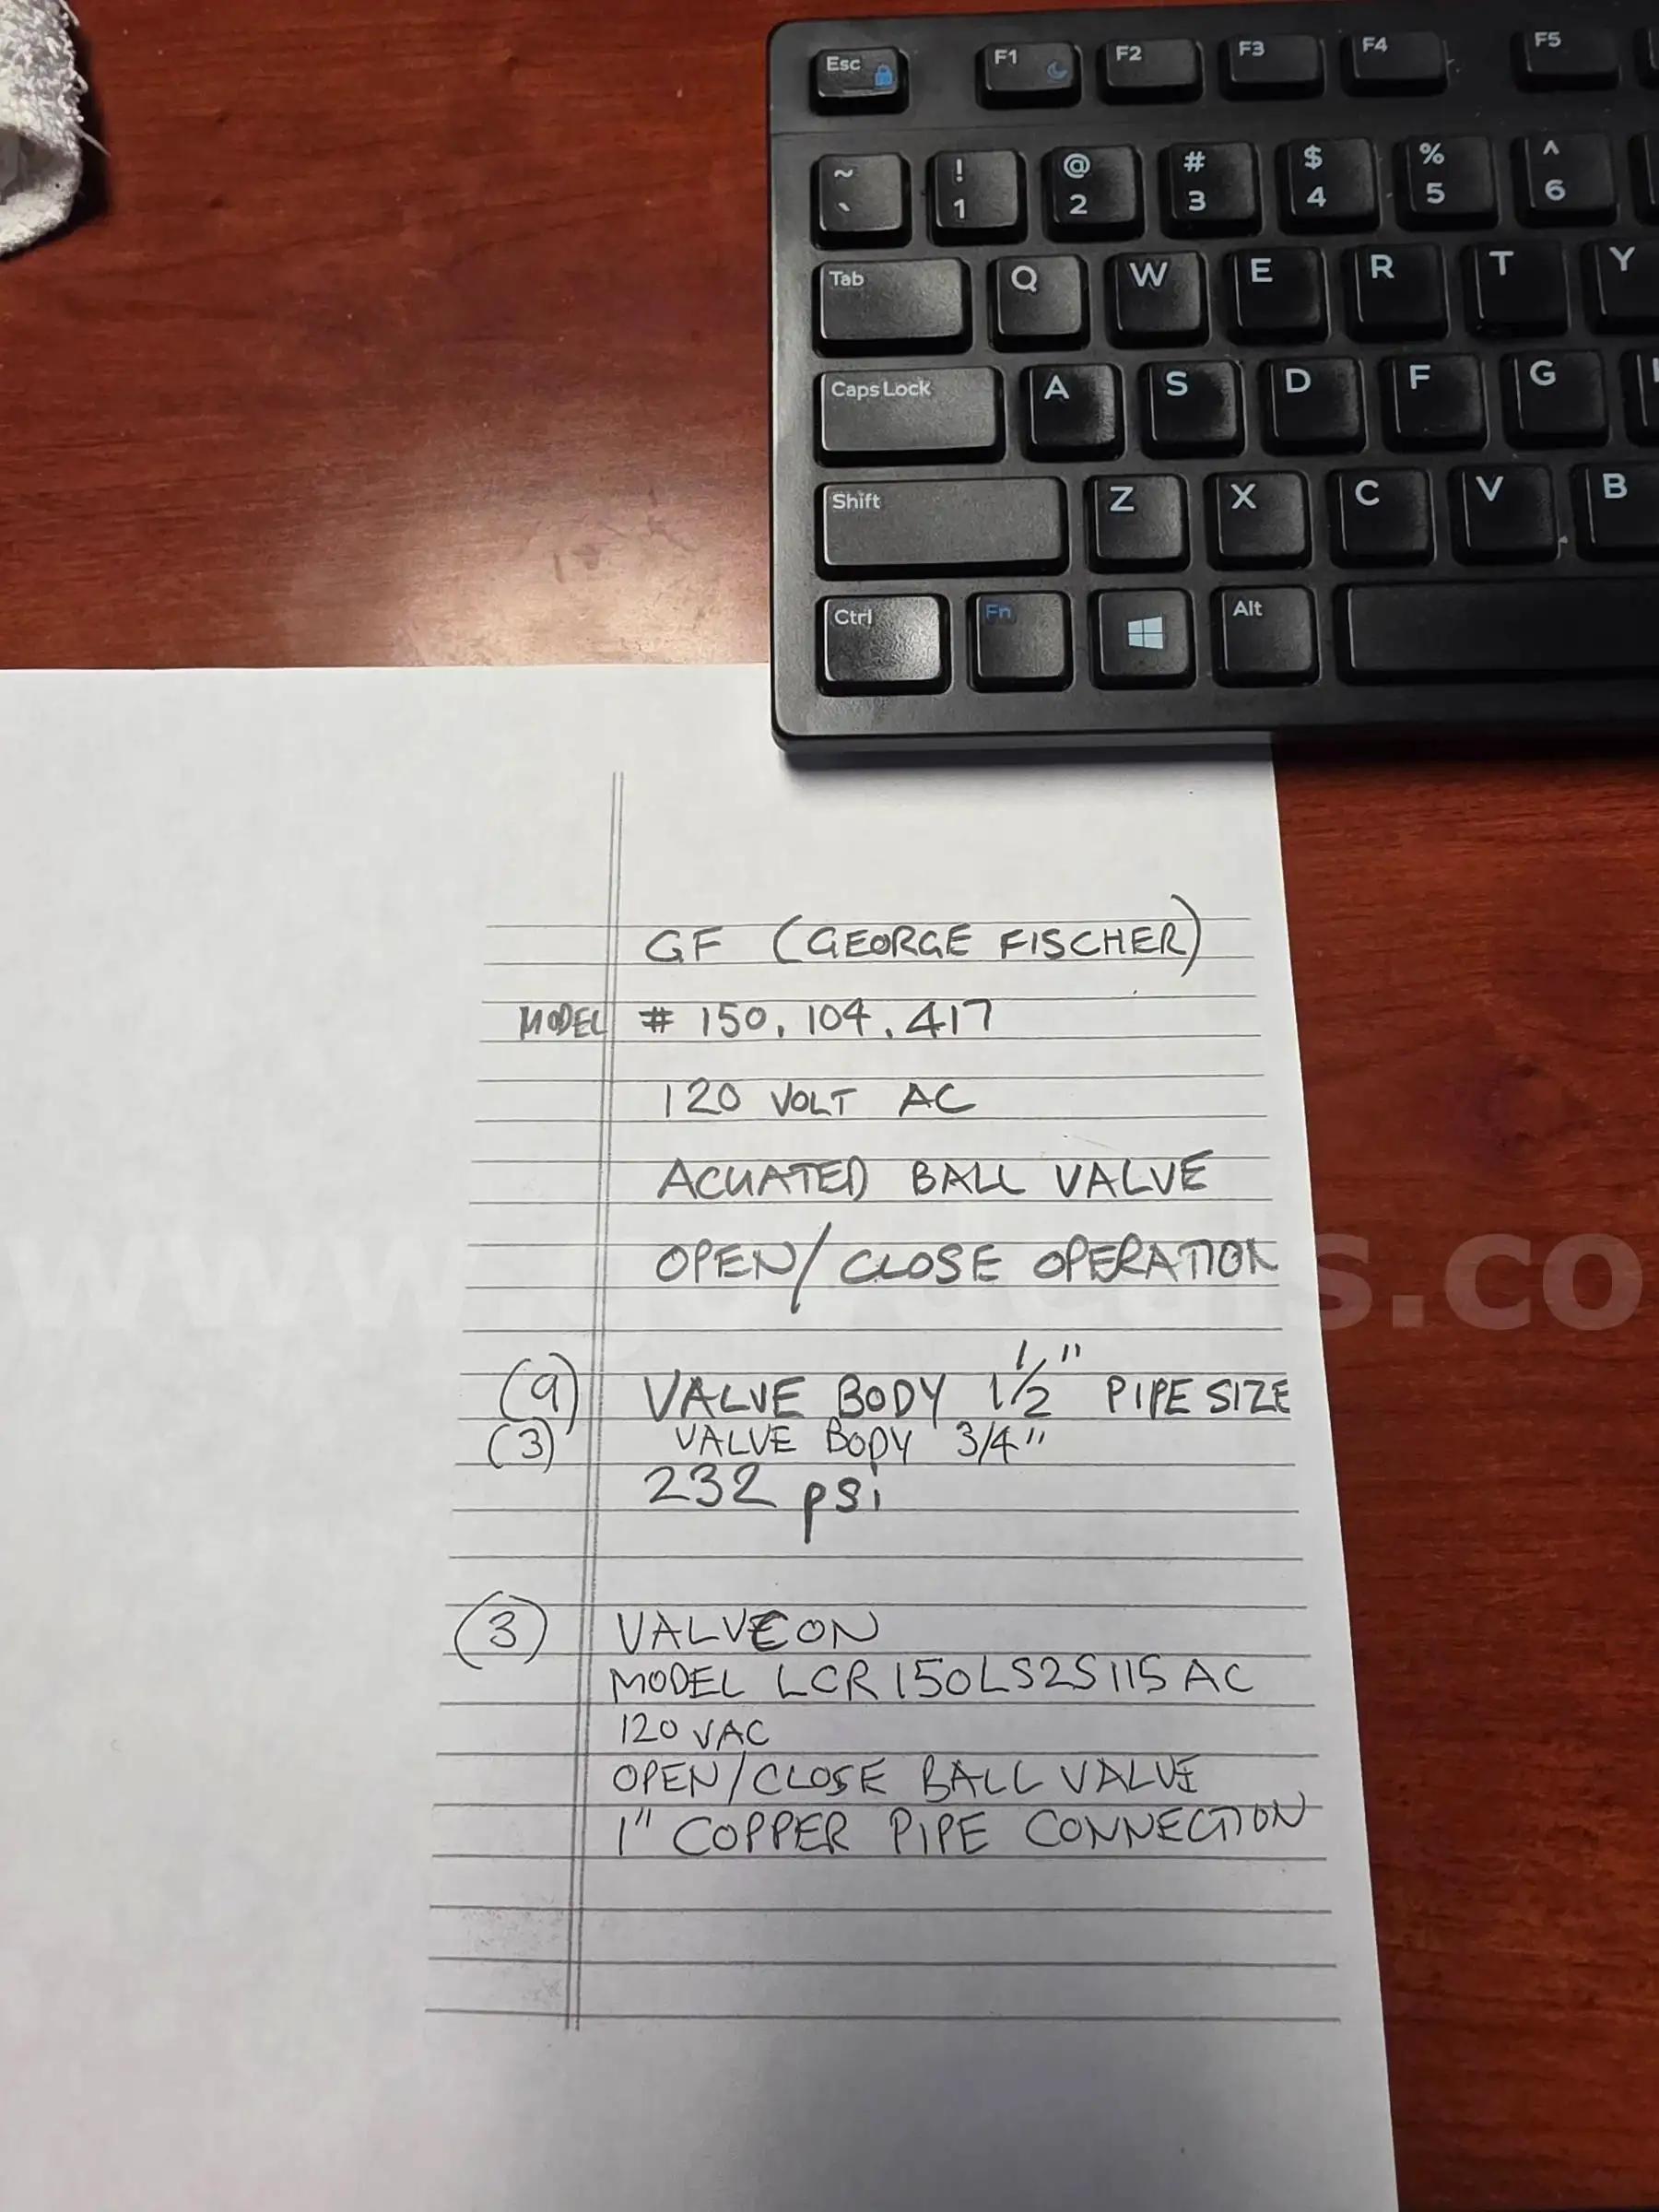 Esc F1 F2 F3 F4 F5
~ ! @ # $ % ^
` 1 2 3 4 5 6
Tab Q W E R T Y
Caps Lock A S D F G
Shift Z X C V B
Ctrl Fn Alt
GF (GEORGE FISCHER)
MODEL # 150.104.417
120 VOLT AC
ACUATED BALL VALVE
OPEN/CLOSE OPERATION
(9) VALVE BODY 1 1/2" PIPE SIZE
(3) VALVE BODY 3/4"
232 psi
(3) VALVECON
MODEL LCR150LS2S115AC
120 VAC
OPEN/CLOSE BALL VALVE
1" COPPER PIPE CONNECTION